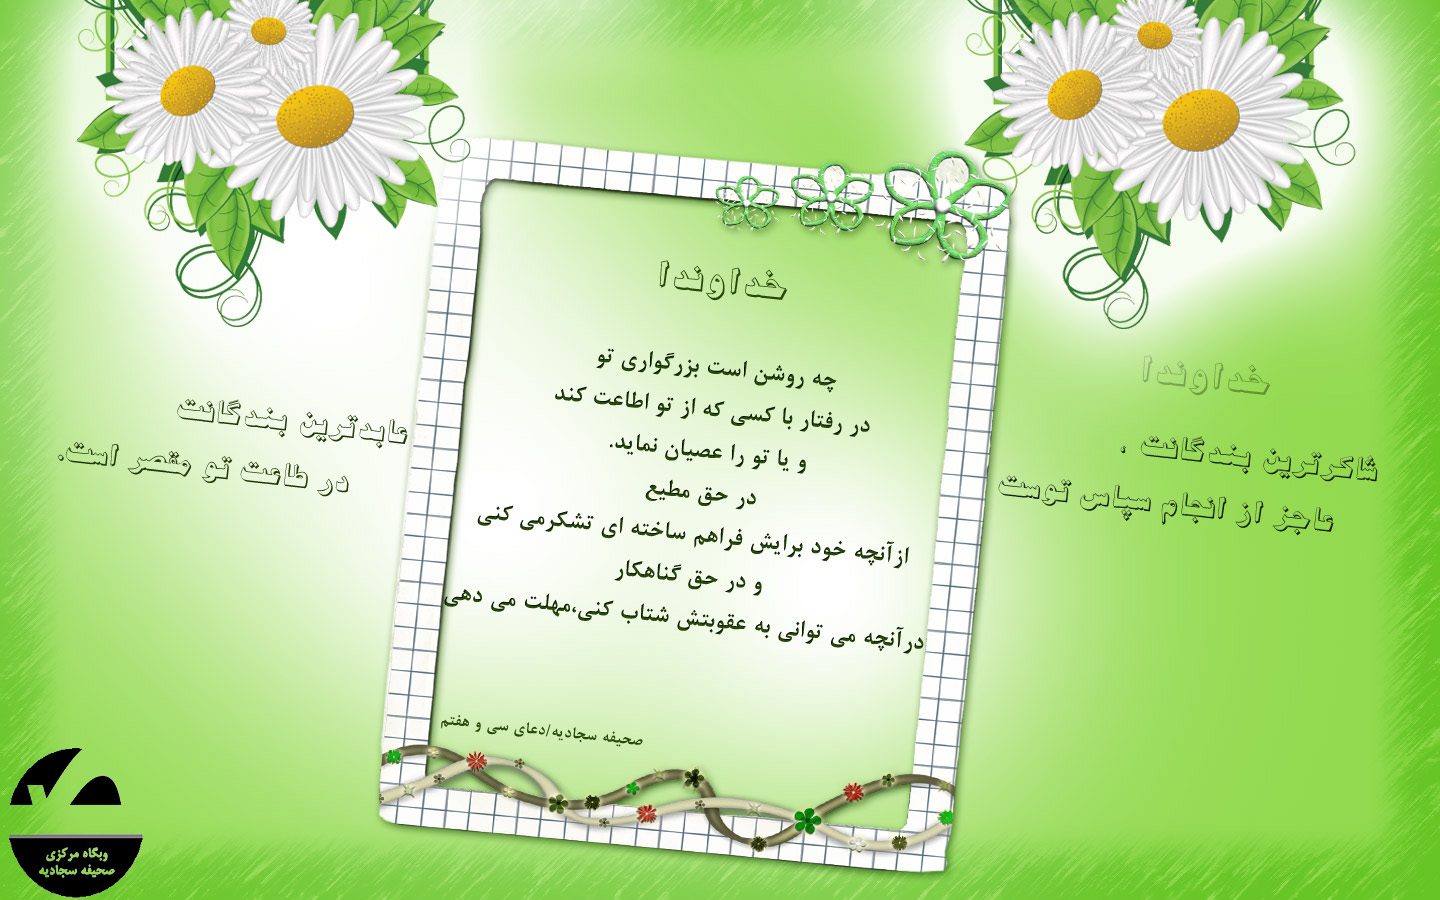 خداوندا
شاکرترین بندگانت ،
عاجز از انجام سپاس توست
خداوندا
چه روشن است بزرگواری تو
در رفتار با کسی که از تو اطاعت کند
و یا تو را عصیان نماید.
در حق مطیع
ازآنچه خود برایش فراهم ساخته ای تشکرمی کنی
و در حق گناهکار
درآنچه می توانی به عقوبتش شتاب کنی،مهلت می دهی
صحیفه سجادیه/دعای سی و هفتم
عابدترین بندگانت
در طاعت تو مقصر است.
وبگاه مرکزی
صحیفه سجادیه